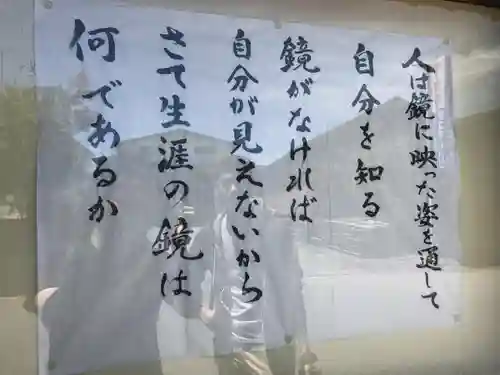 人は鏡に映った姿を通して
自分を知る
鏡がなければ
自分が見えないから
さて生涯の鏡は
何であるか